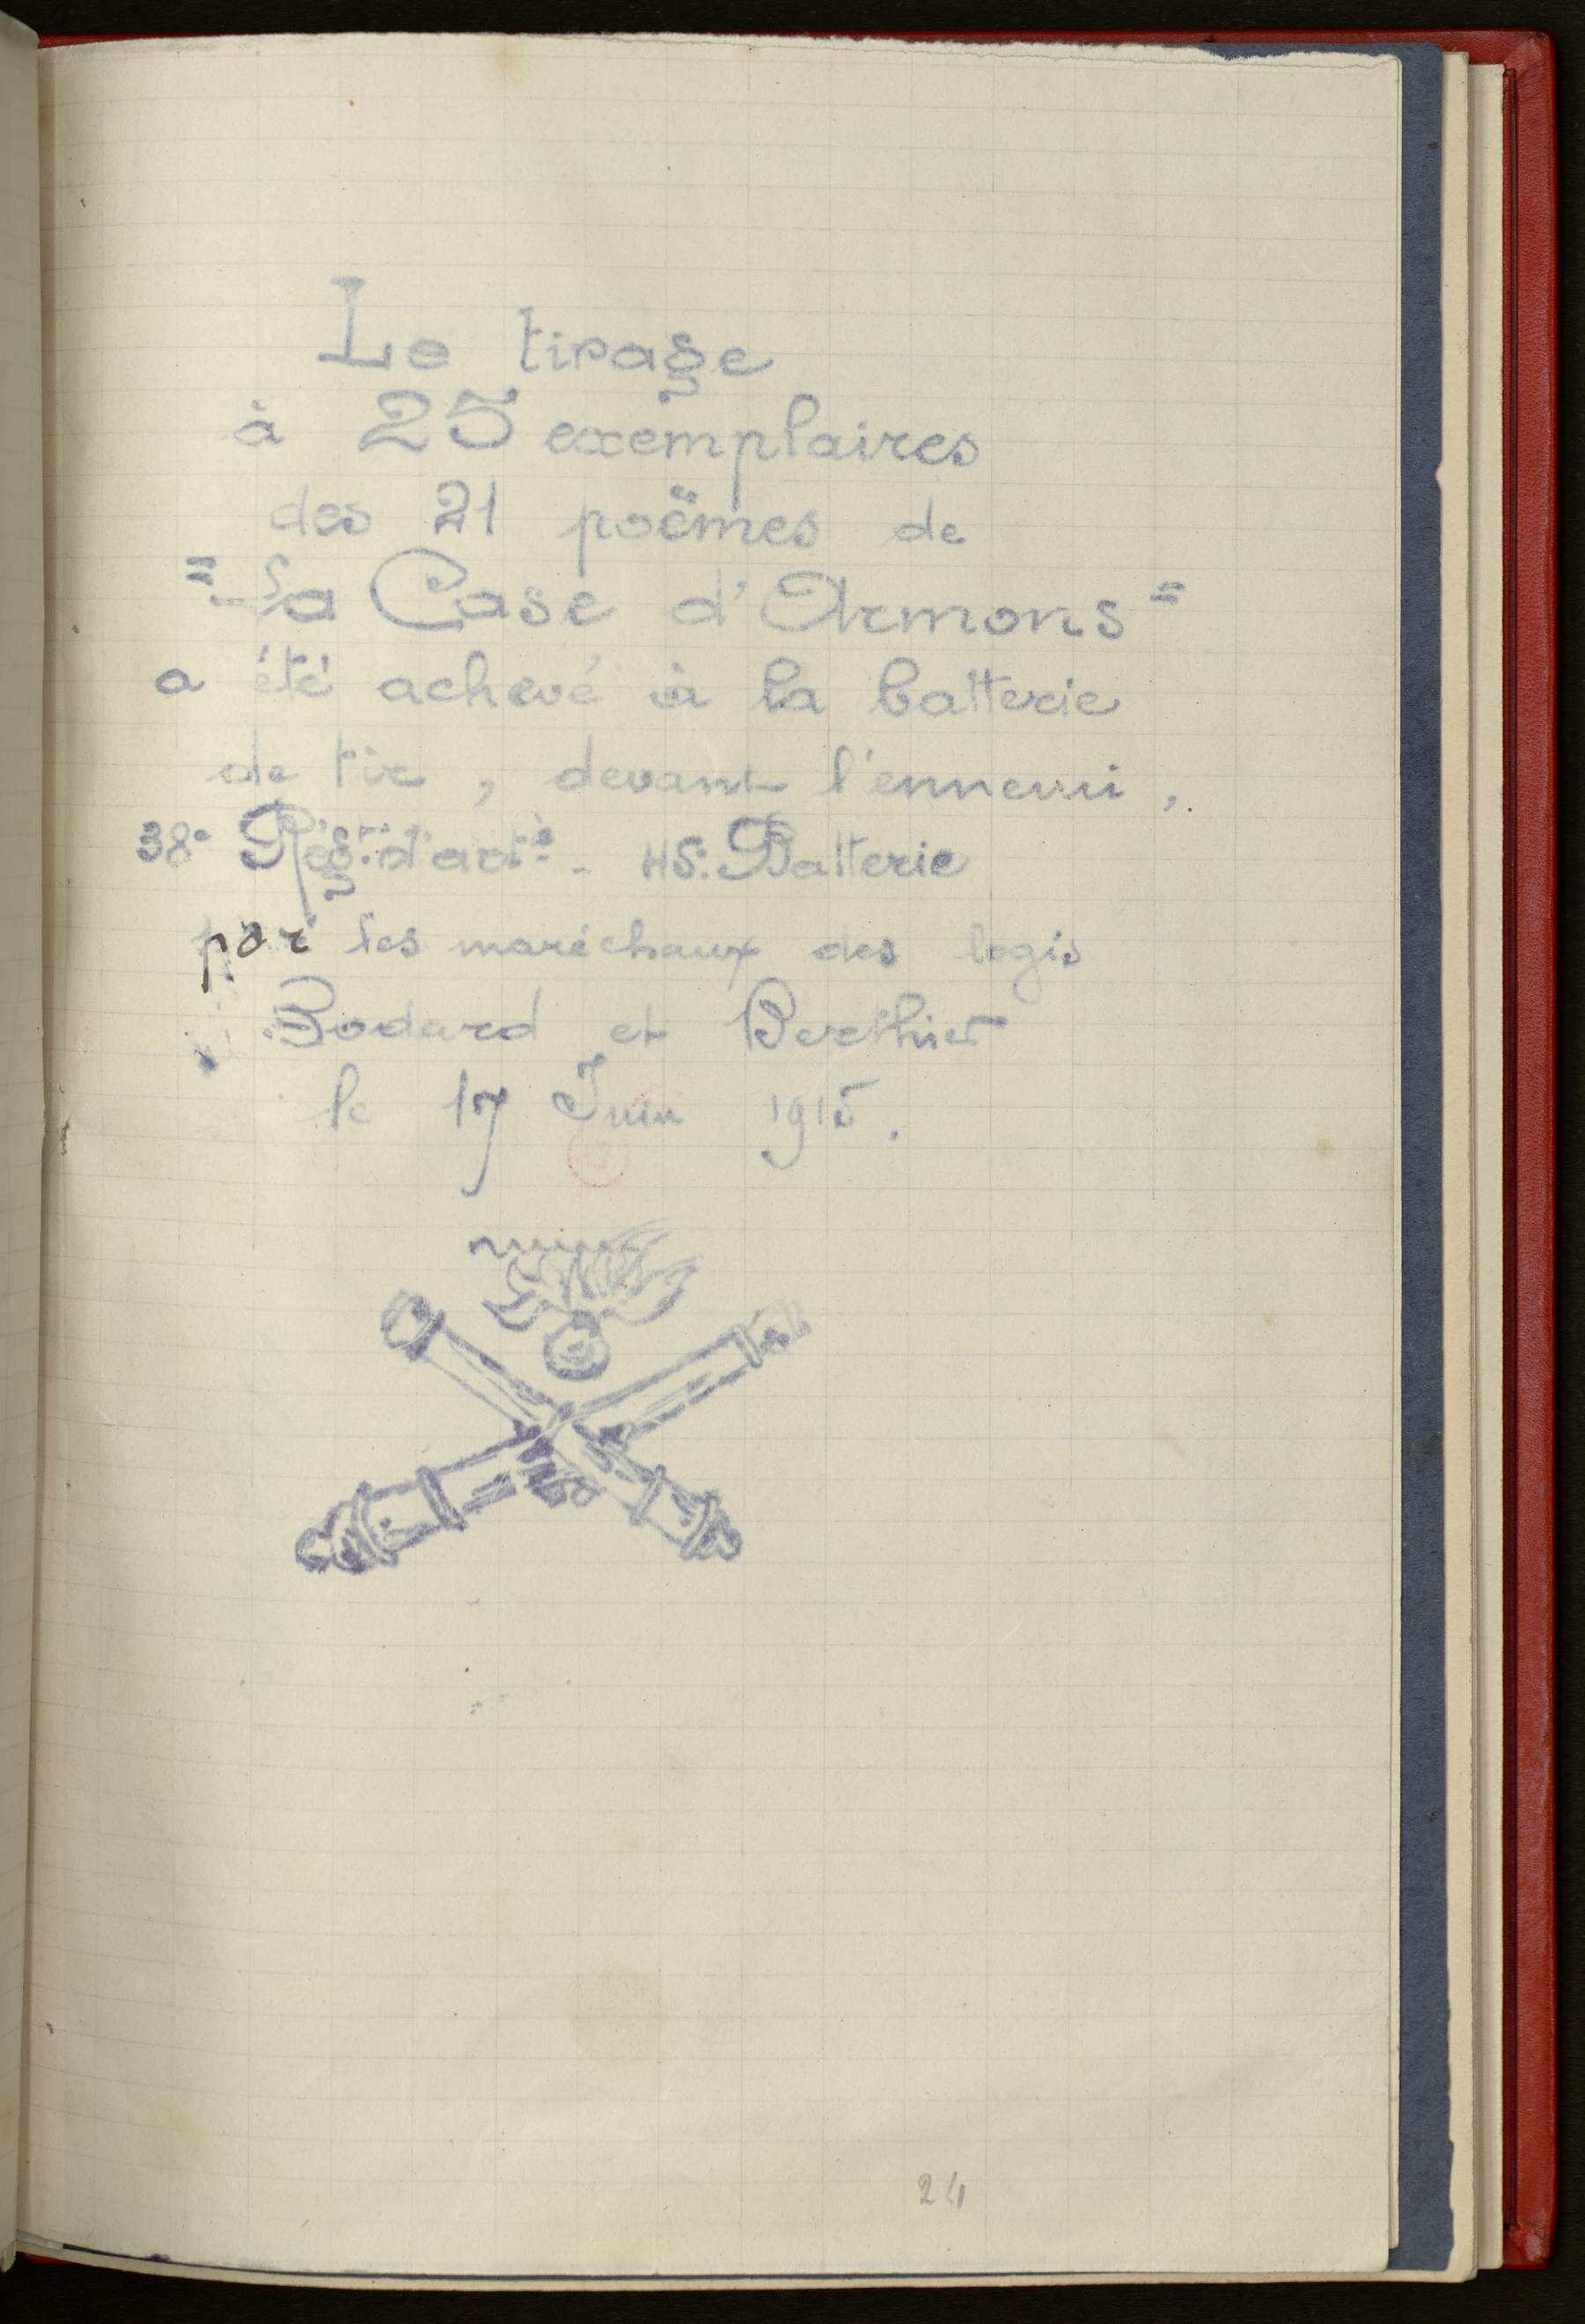 Le tirage
à 25 exemplaires
des 21 poëmes de
"La Case d'Armons"
a été achevé à la batterie
de tir, devant l'ennemi,
38e Régt d'arte - 45e Batterie
par les maréchaux des logis
Bodard et Berthier
le 17 Juin 1915.
24